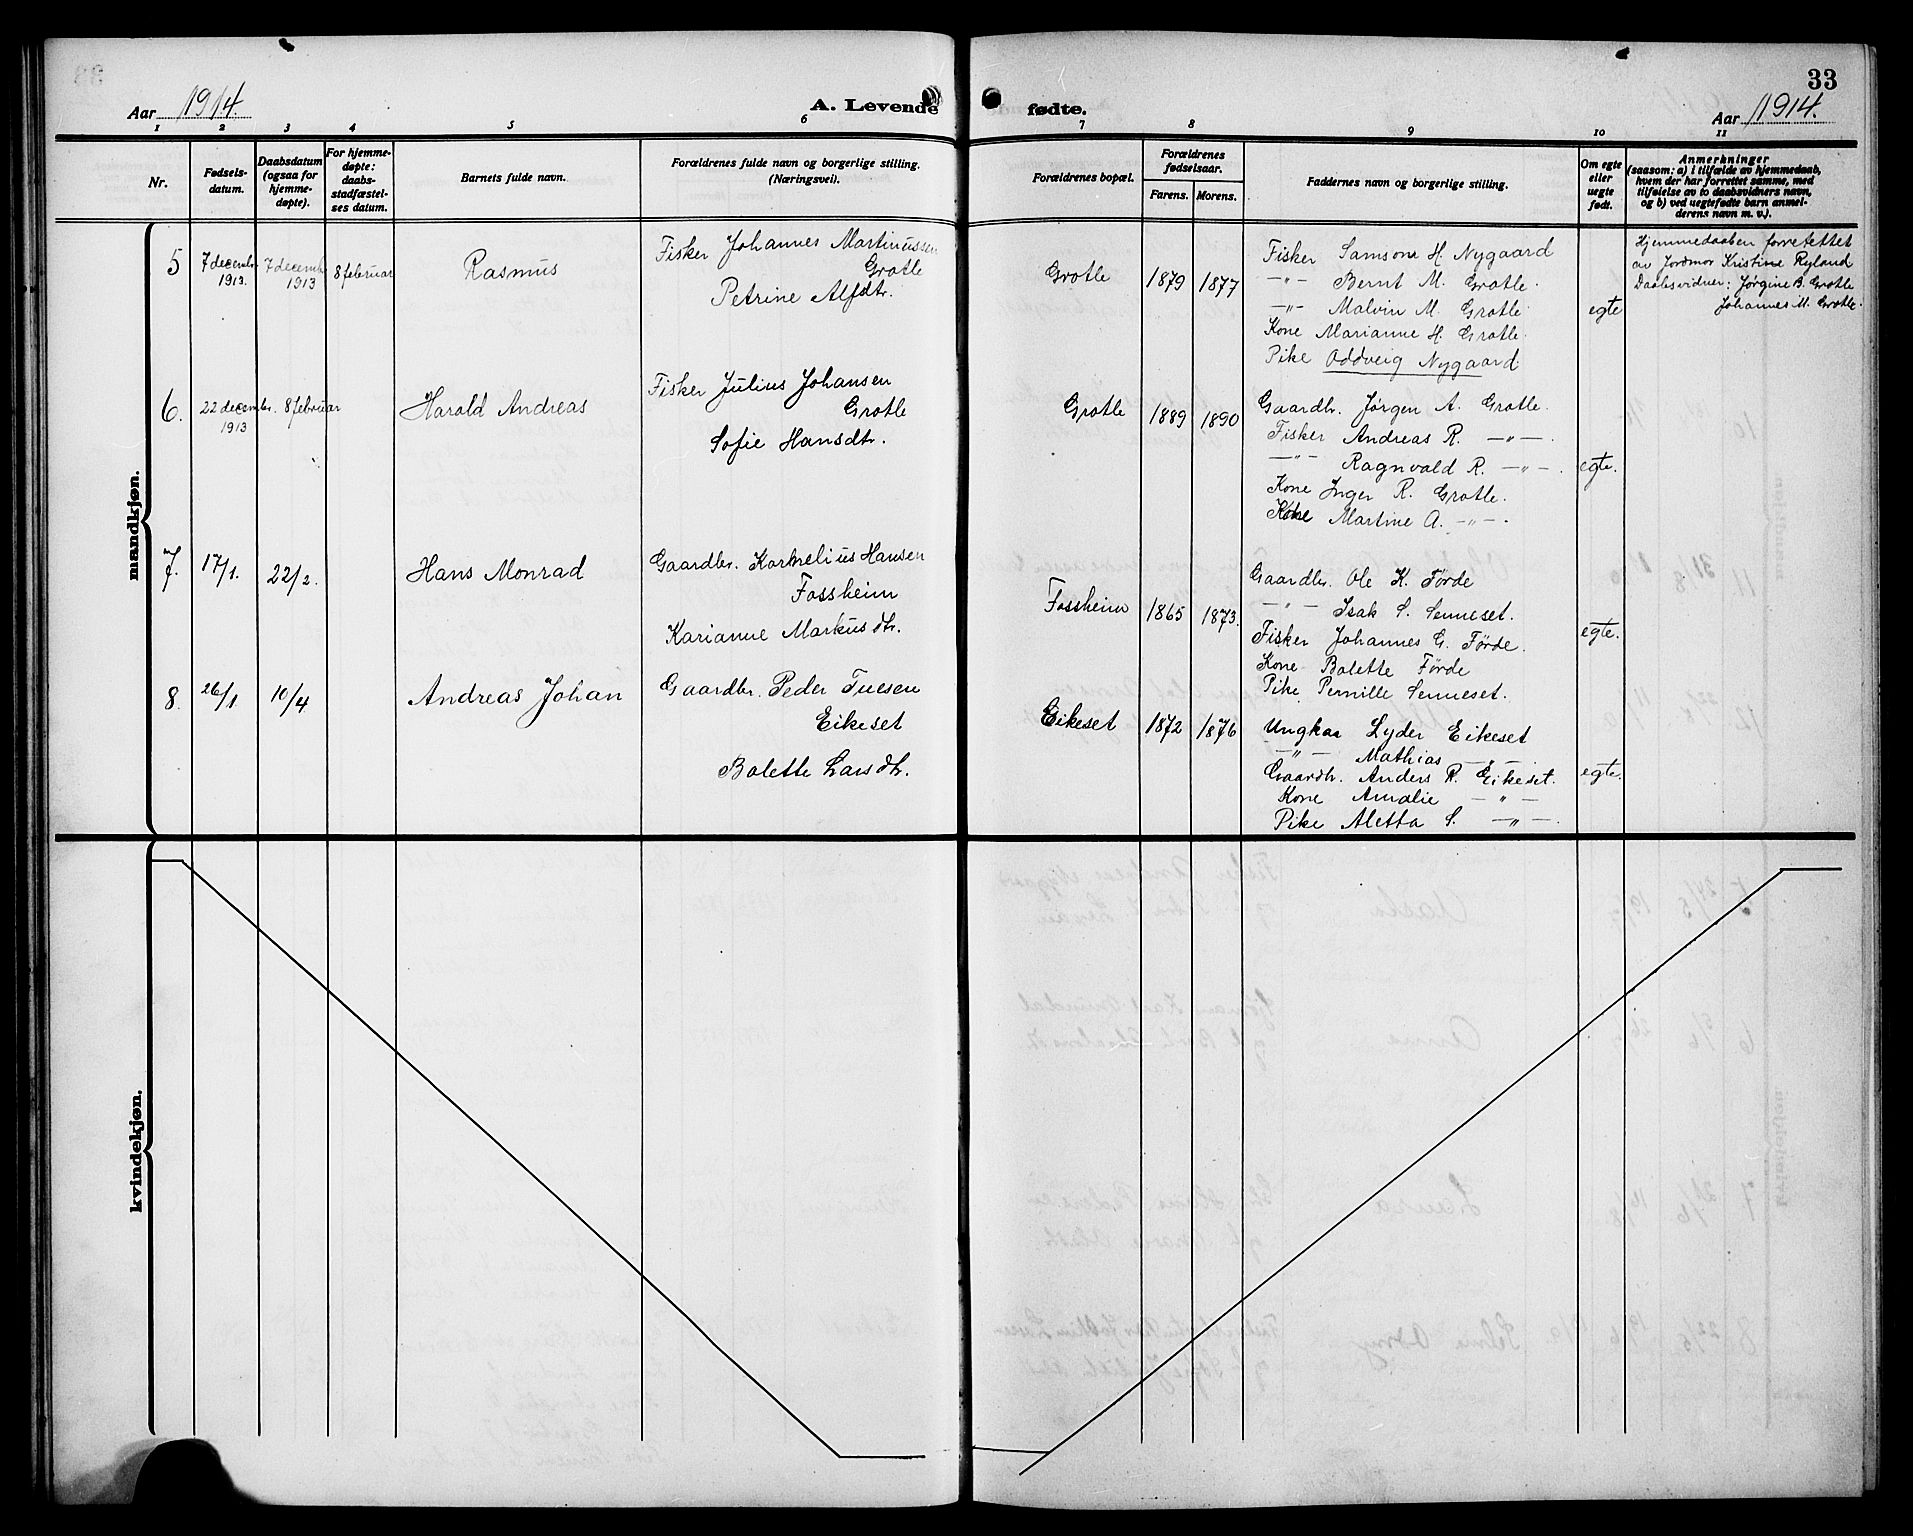 33
Aar 1914.
A. Levende fødte.
Aar 1914.
1 2 3 4 5 6 7 8 9 10 11
Nr.
Fødsels-
datum.
Daabsdatum
(ogsaa for
hjemme-
døpte).
For hjemme-
døpte:
daabs-
stadfæstel-
ses datum.
Barnets fulde navn.
Forældrenes fulde navn og borgerlige stilling.
(Næringsvei).
Forældrenes bopæl.
Forældrenes
fødselsaar.
Farens. Morens.
Faddernes navn og borgerlige stilling.
Om egte
eller
uegte
født.
Anmerkninger
(saasom: a) i tilfælde av hjemmedaab,
hvem der har forrettet samme, med
tilføielse av to daabsvidners navn,
og b) ved uegtefødte barn anmel-
derens navn m. v.).
mandkjøn.
5
7 decembr.
1913.
7 decembr.
1913
8 februar
Rasmus
Fisker Johannes Martinussen
Grotle
Petrine Alfdtr.
Grotle
1879
1877
Fisker Samsone H. Nygaard
-"- Bernt M. Grotle.
-"- Malvin M. Grotle
Kone Marianne H. Grotle.
Pike Oddveig Nygaard
egte
Hjemmedaaben forrettet
av Jordmor Kristine Ryland
Daabsvidner: Jørgine B. Grotle
Johannes M. Grotle.
6.
22 decembr.
1913
8 februar
Harald Andreas
Fisker Julius Johansen
Grotle
Sofie Hansdtr.
Grotle
1889
1890
Gaardbr. Jørgen A. Grotle.
Fisker Andreas R. -"-.
-"- Ragnvald R. -"-.
Kone Inger R. Grotle.
Kone Martine A. -"-.
egte.
7.
17/1.
22/2.
Hans Monrad
Gaardbr. Kornelius Hansen
Fossheim
Karianne Markusdtr.
Fossheim
1865
1873.
Gaardbr. Ole K. Førde
-"- Isak S. Senneset.
Fisker Johannes G. Førde.
Kone Balette Førde
Pike Pernille Senneset.
egte.
8.
26/1
10/4
Andreas Johan
Gaardbr. Peder Tuesen
Eikeset
Balette Larsdtr.
Eikeset
1872
1876
Ungkar Lyder Eikeset
-"- Mathias -"-
Gaardbr. Anders R. Eikeset.
Kone Amalie -"-
Pike Aletta S. -"-.
egte.
kvindekjøn.